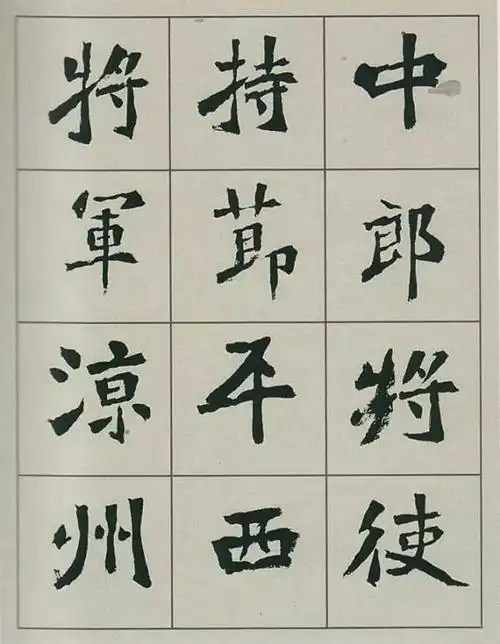 中郎将使
持莭平西
将軍涼州